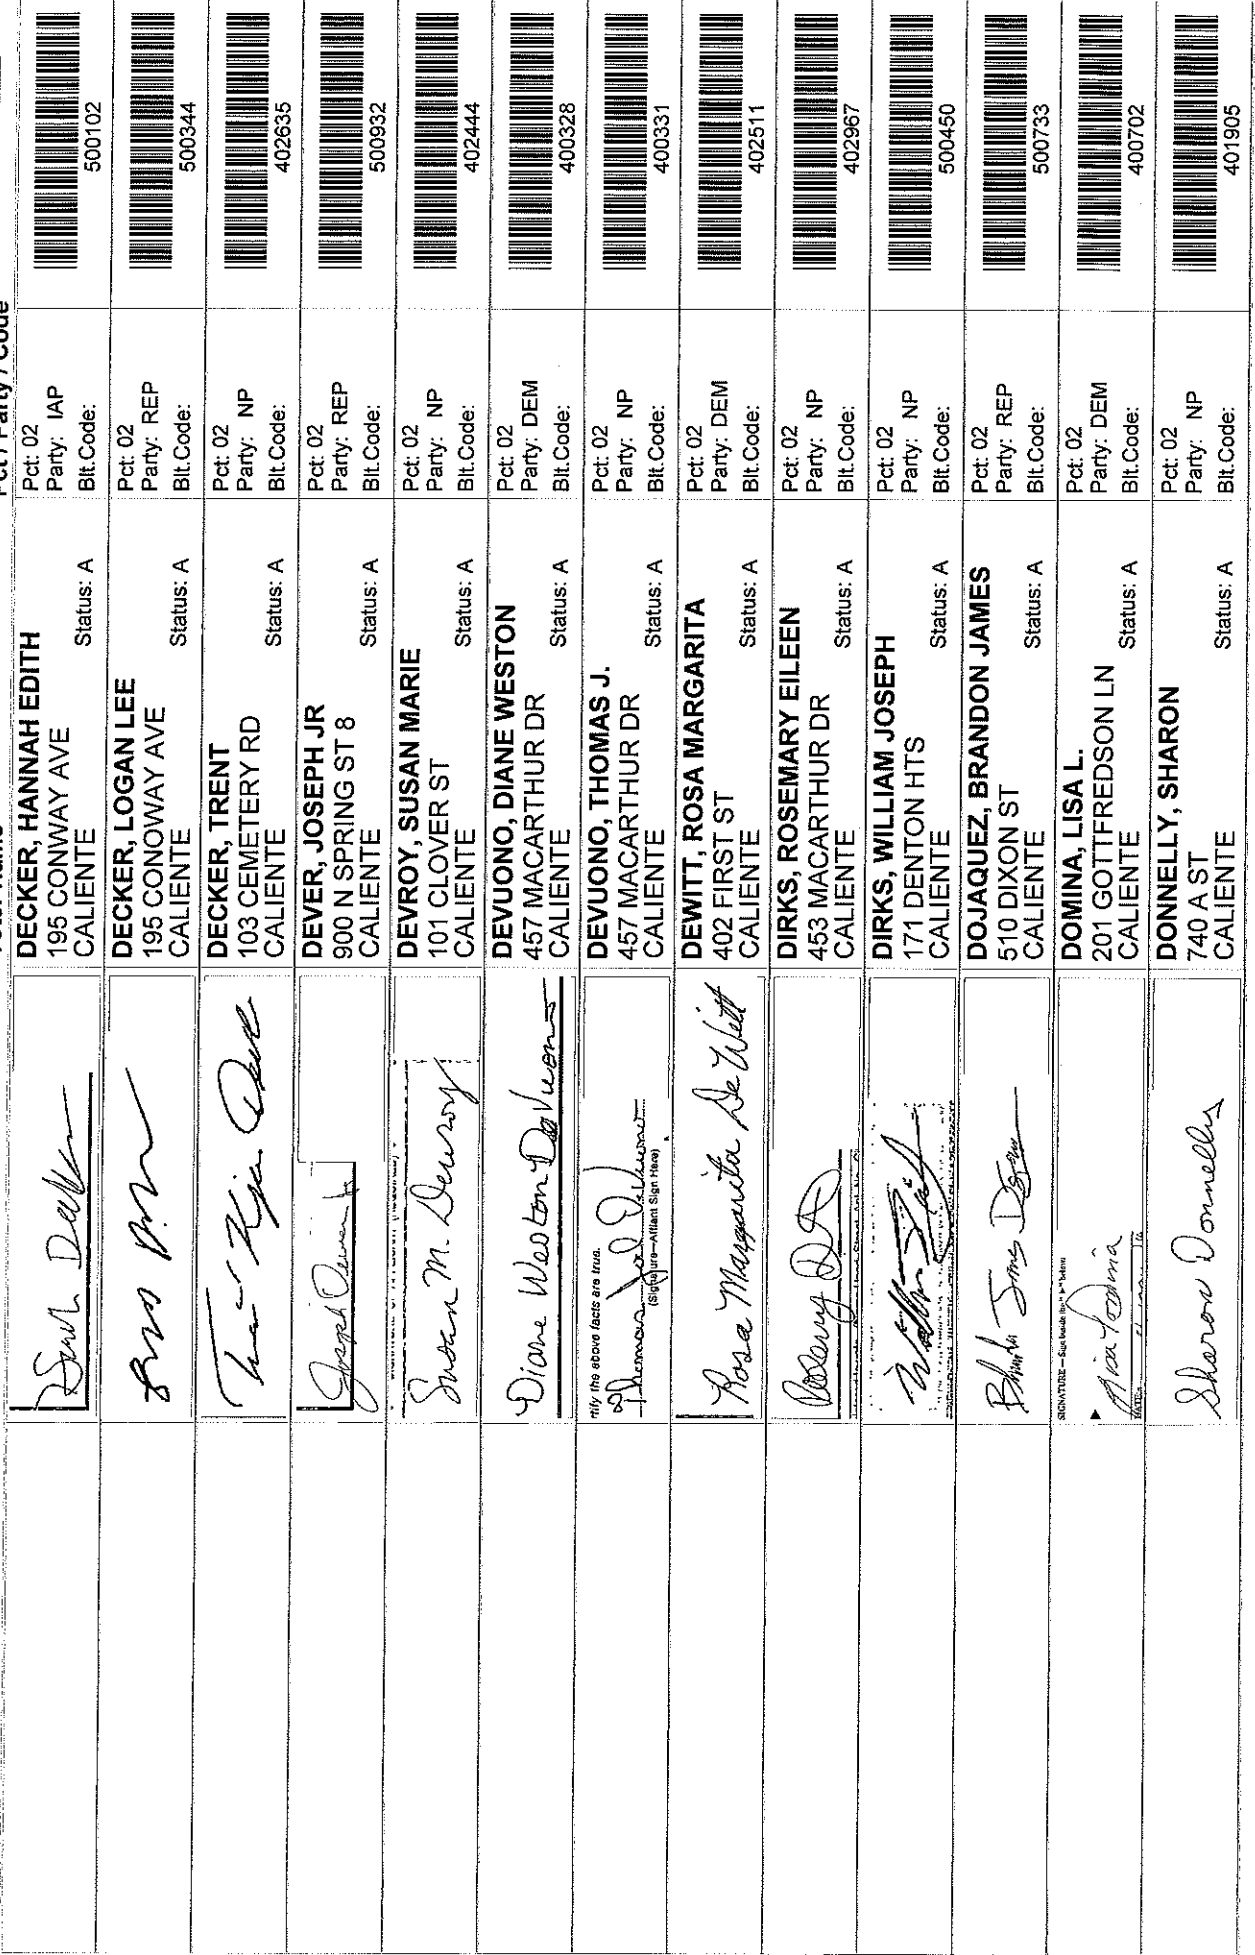 Pct / Party / Code
DECKER, HANNAH EDITH
195 CONWAY AVE
CALIENTE
Status: A
Pct: 02
Party: IAP
Blt.Code:
500102
DECKER, LOGAN LEE
195 CONOWAY AVE
CALIENTE
Status: A
Pct: 02
Party: REP
Blt.Code:
500344
DECKER, TRENT
103 CEMETERY RD
CALIENTE
Status: A
Pct: 02
Party: NP
Blt.Code:
402635
Joseph Dever Jr
DEVER, JOSEPH JR
900 N SPRING ST 8
CALIENTE
Status: A
Pct: 02
Party: REP
Blt.Code:
500932
Susan M. Devroy
DEVROY, SUSAN MARIE
101 CLOVER ST
CALIENTE
Status: A
Pct: 02
Party: NP
Blt.Code:
402444
Diane Weston DeVuono
DEVUONO, DIANE WESTON
457 MACARTHUR DR
CALIENTE
Status: A
Pct: 02
Party: DEM
Blt.Code:
400328
rtify the above facts are true.
(Signature—Affiant Sign Here)
DEVUONO, THOMAS J.
457 MACARTHUR DR
CALIENTE
Status: A
Pct: 02
Party: NP
Blt.Code:
400331
Rosa Margarita De Witt
DEWITT, ROSA MARGARITA
402 FIRST ST
CALIENTE
Status: A
Pct: 02
Party: DEM
Blt.Code:
402511
DIRKS, ROSEMARY EILEEN
453 MACARTHUR DR
CALIENTE
Status: A
Pct: 02
Party: NP
Blt.Code:
402967
DIRKS, WILLIAM JOSEPH
171 DENTON HTS
CALIENTE
Status: A
Pct: 02
Party: NP
Blt.Code:
500450
DOJAQUEZ, BRANDON JAMES
510 DIXON ST
CALIENTE
Status: A
Pct: 02
Party: REP
Blt.Code:
500733
Lisa Domina
DOMINA, LISA L.
201 GOTTFREDSON LN
CALIENTE
Status: A
Pct: 02
Party: DEM
Blt.Code:
400702
Sharon Donnelly
DONNELLY, SHARON
740 A ST
CALIENTE
Status: A
Pct: 02
Party: NP
Blt.Code:
401905